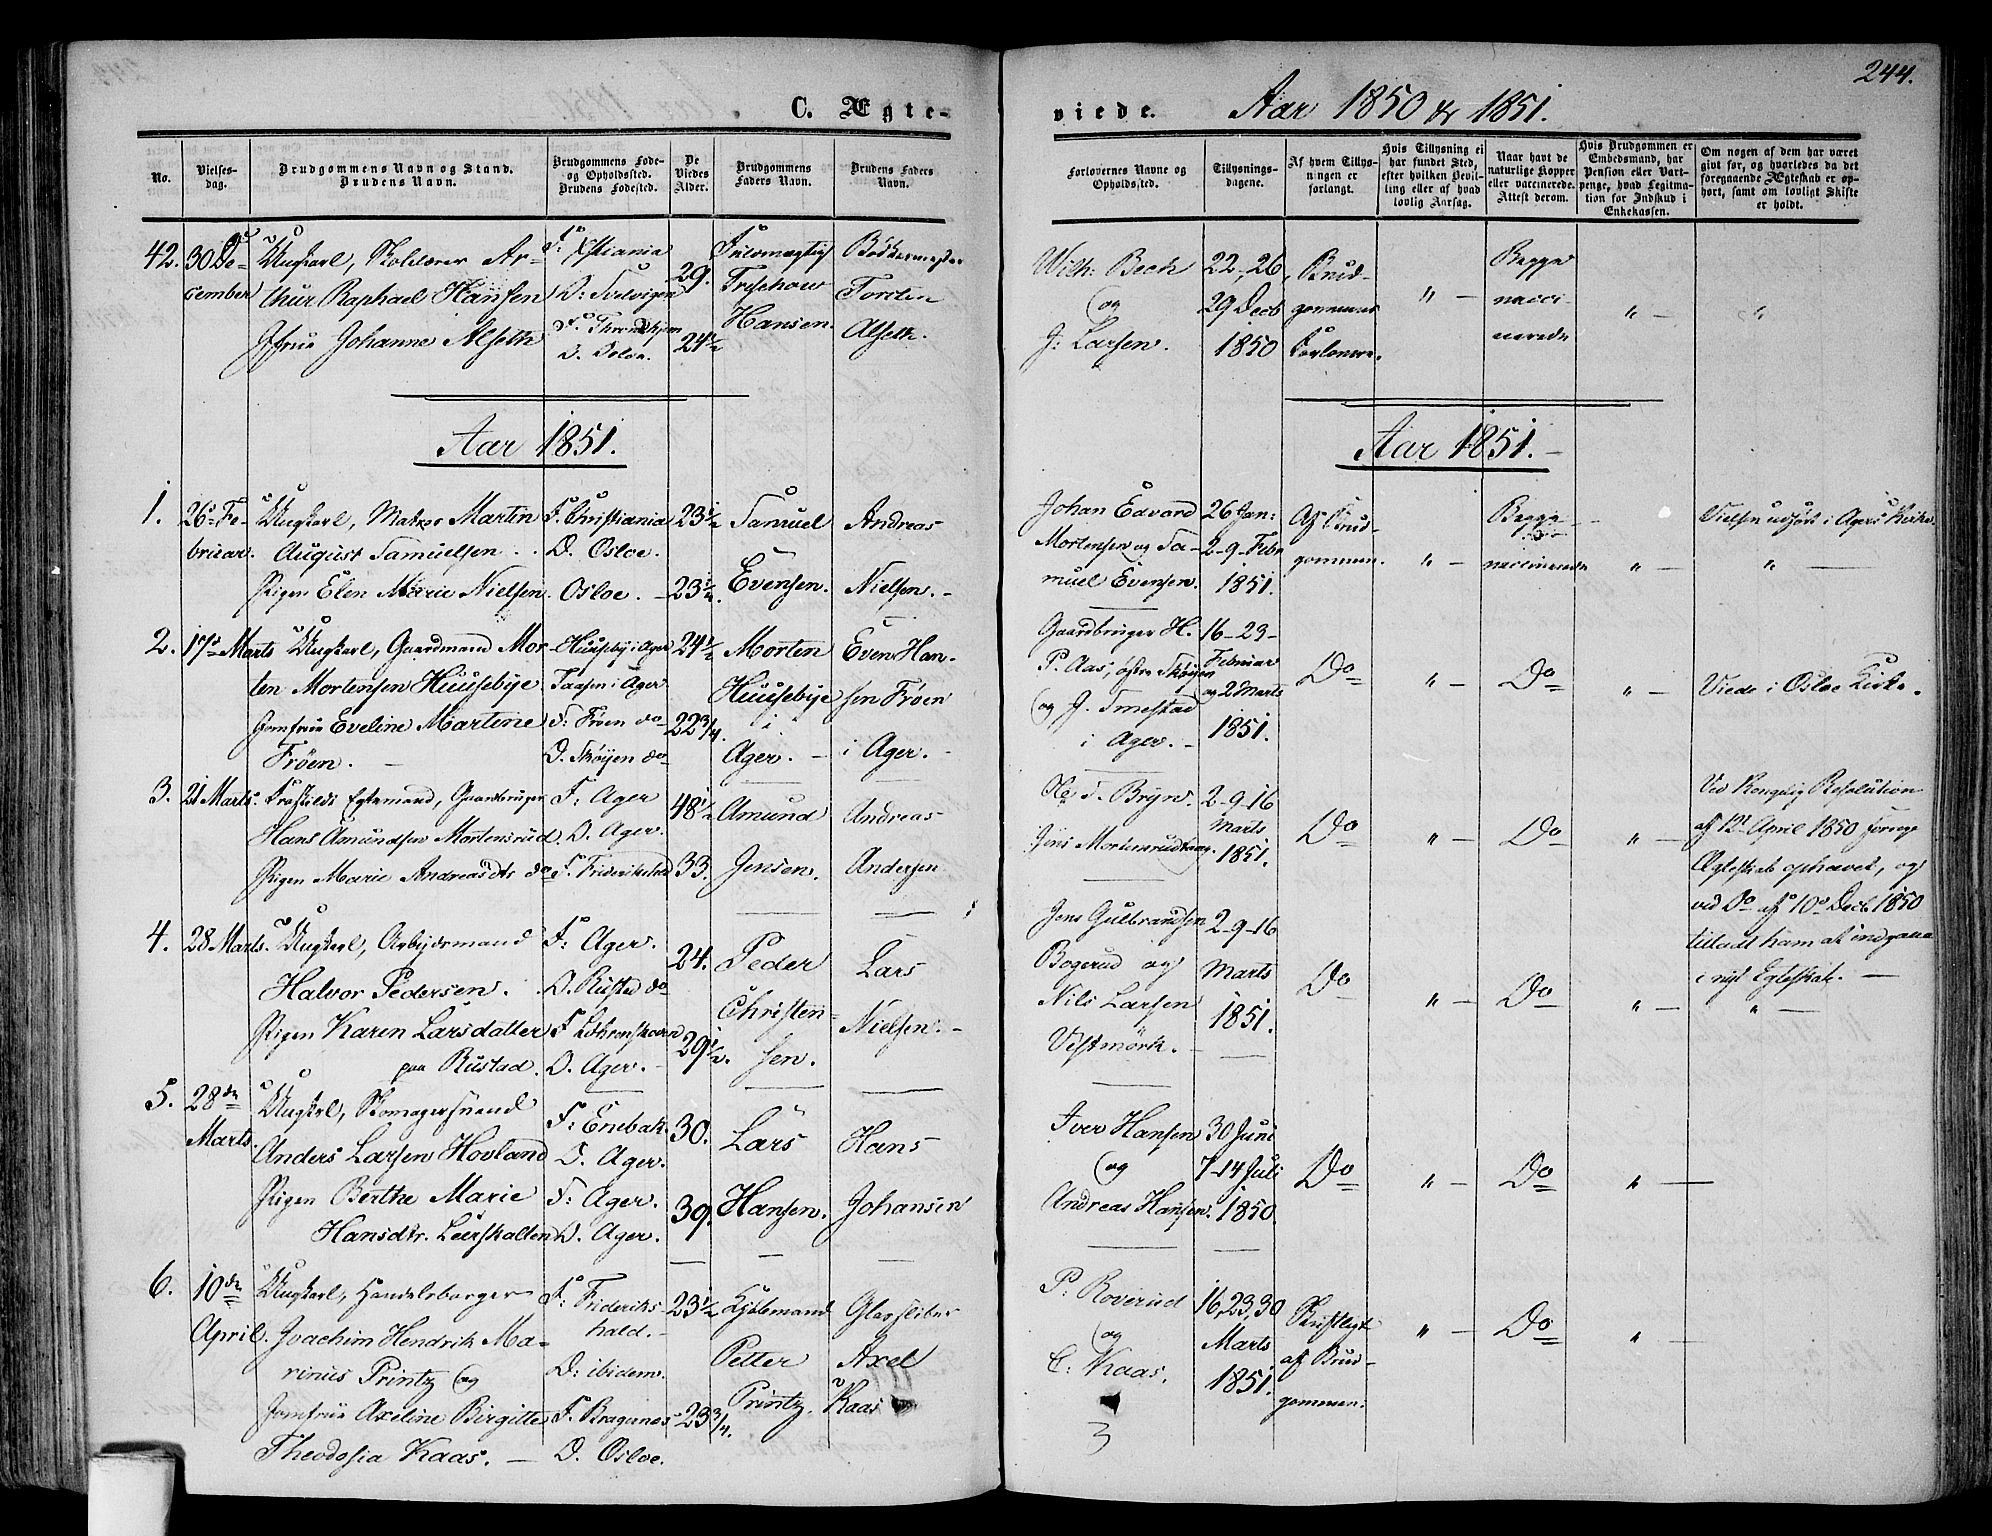 244.
C. Ægte-
viede. Aar 1850 & 1851.
No.
Vielses-
dag.
Brudgommens Navn og Stand.
Brudens Navn.
Brudgommens Føde-
og Opholdssted.
Brudens Fødested.
De
Viedes
Alder.
Brudgommens
Faders Navn.
Brudens Faders
Navn.
Forlovernes Navne og
Opholdssted.
Tillysnings-
dagene.
Af hvem Tillys-
ningen er
forlangt.
Hvis Tillysning ei
har fundet Sted,
efter hvilken Bevil-
ling eller af hvad
lovlig Aarsag.
Naar havt de
naturlige Kopper
eller vaccinerede.
Attest derom.
Hvis Brudgommen er
Embedsmand, har
Pension eller Vart-
penge, hvad Legitima-
tion for Indskud i
Enkekassen.
Om nogen af dem har været
gift før, og hvorledes da det
foregaaende Ægteskab er op-
hørt, samt om lovligt Skifte
er holdt.
42. 30 De-
cember
Ungkarl, Ar-
thur Raphael Hansen
Jfrue Johanne Alseth
F: Xstiania
O: Tvelvigen
F: Throndhjem
O. Osloe.
29.
24½
Fuldmægtig
Treschow
Hansen.
Bødkermester
Torsten
Alseth.
Wilh: Beck
og
J: Larsen.
22, 26,
29 Decb
1850
Brud-
gommens
Forlovere.
" -
Begge
vacci-
nerede
" -
"
Aar 1851.
Aar 1851. -
1. 26 Fe-
bruar.
Ungkarl, Matros Martin
August Samuelsen
Pigen Elen Marie Nielsen.
F. Christiania
O. Osloe.
Osloe. -
23½
23½.
Samuel
Evensen.
Andreas
Nielsen. -
Johan Edvard
Mortensen og Sa-
muel Evensen.
26 Jan:
2-9-Febr
1851.
Af Brud-
gommen.
" -
Begge
vaccinerede
" -
Vielsen udført i Agers Kirke.
" -
2. 17 Marts
Ungkarl, Gaardmand Mor-
ten Mortensen Huusebye
Jomfrue Eveline Martine
Frøen. -
Huuseby i Ager
Taasen i Ager
F: Frøen do
O. Skøyen do
24½
22¾.
Morten
Huusebye
i
Ager. -
Even Han-
sen Frøen
i Ager. -
Gaardbruger H.
P. Aas, østre Skøyen
og J. Tmestad
i Ager. -
16-23-
Februar
og 2 Marts
1851.
Do
" -
Do
" -
Viede i Osloe Kirke.
3. 21 Marts.
Fraskildt Egtemand, Gaardbruger
Hans Amundsen Mortensrud
Pigen Marie Andreasdtr do
F: Ager
O. Ager.
F. Frideriksha
48½
33.
Amund
Jensen.
Andreas
Andersen
Bryn.
Jens Mortensrud
2-9-16
Marts
1851.
Do
" -
Do
" -
Ved Kongelig Resolution
af 12 April 1850 forrige
Ægteskab ophævet, og
ved Do af 10 Decb. 1850
tilladt ham at indgaae
i nyt Egteskab. -
4. 28 Marts.
Ungkarl, Arbeidsmand
Halvor Pedersen.
Pigen Karen Larsdatter
paa Rustad.
F: Ager.
O. Rustad do
F
O. Ager. -
24.
29½.
Peder
Christen-
sen.
Lars
Nielsen. -
Jens Gulbrandsen
Bogerud og
Nils Larsen
Vestmørk. -
2-9-16
Marts
1851.
Do
" -
Do
" -
" -
5. 28de
Marts.
Ungkarl, Skomagersvend
Anders Larsen Hovland
Pigen Berthe Marie
Hansdtr. Leirskallen
F: Enebak.
O. Ager.
F: Ager.
O. Ager.
30.
39.
Lars
Hansen.
Hans
Johansen
Iver Hansen
og
Andreas Hansen.
30 Juni
7-14 Juli
1850.
Do
" -
Do
" -
6. 10de
April.
Ungkarl, Handelsborger
Joachim Hendrik Ma-
rinius Printz og
Jomfrue Axeline Birgitte
Theodosia Kaas. -
F: Frideriks-
hald. -
O: ibidem.
F. Bragenes
O. Osloe.
23½
23¾.
Kjøbmand
Petter
Printz.
Axel
Kaas
P. Roverud
og
C: Kaas.
3
16, 23, 30
Marts
1851.
Skriftligt
af Brud-
gommen.
" -
Do
" -